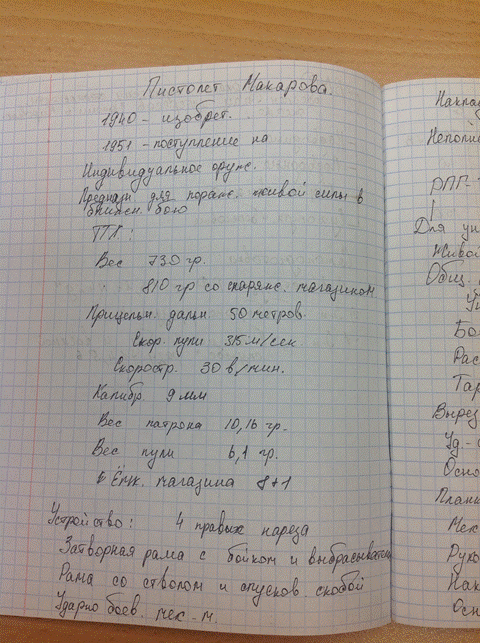 Пистолет Макарова.
1940 - изобрет.
1951 - поступление на
Индивидуальное оруж.
Предназн для пораж. живой силы в
ближн. бою
Вес 730 гр.
810 гр со снаряж. магазином
Прицельн дальн 50 метров.
Скор. пули 315 м/сек
Скоростр. 30 в/мин.
Калибр 9 мм
Вес патрона 10,16 гр.
Вес пули 6,1 гр.
Ёмк. магазина 8+1
Устройство: 4 правых нареза
Затворная рама с бойком и выбрасывателем
Рама со стволом и спусков. скобой
Ударно боев. мех-м.
Наклад
Неполн
РПГ-7
Для ун
Живой
Общ.
Бо
Рас
Тар
Вырез
Уд.-
Осно
Планк
Мех
Руко
Нак
Осн